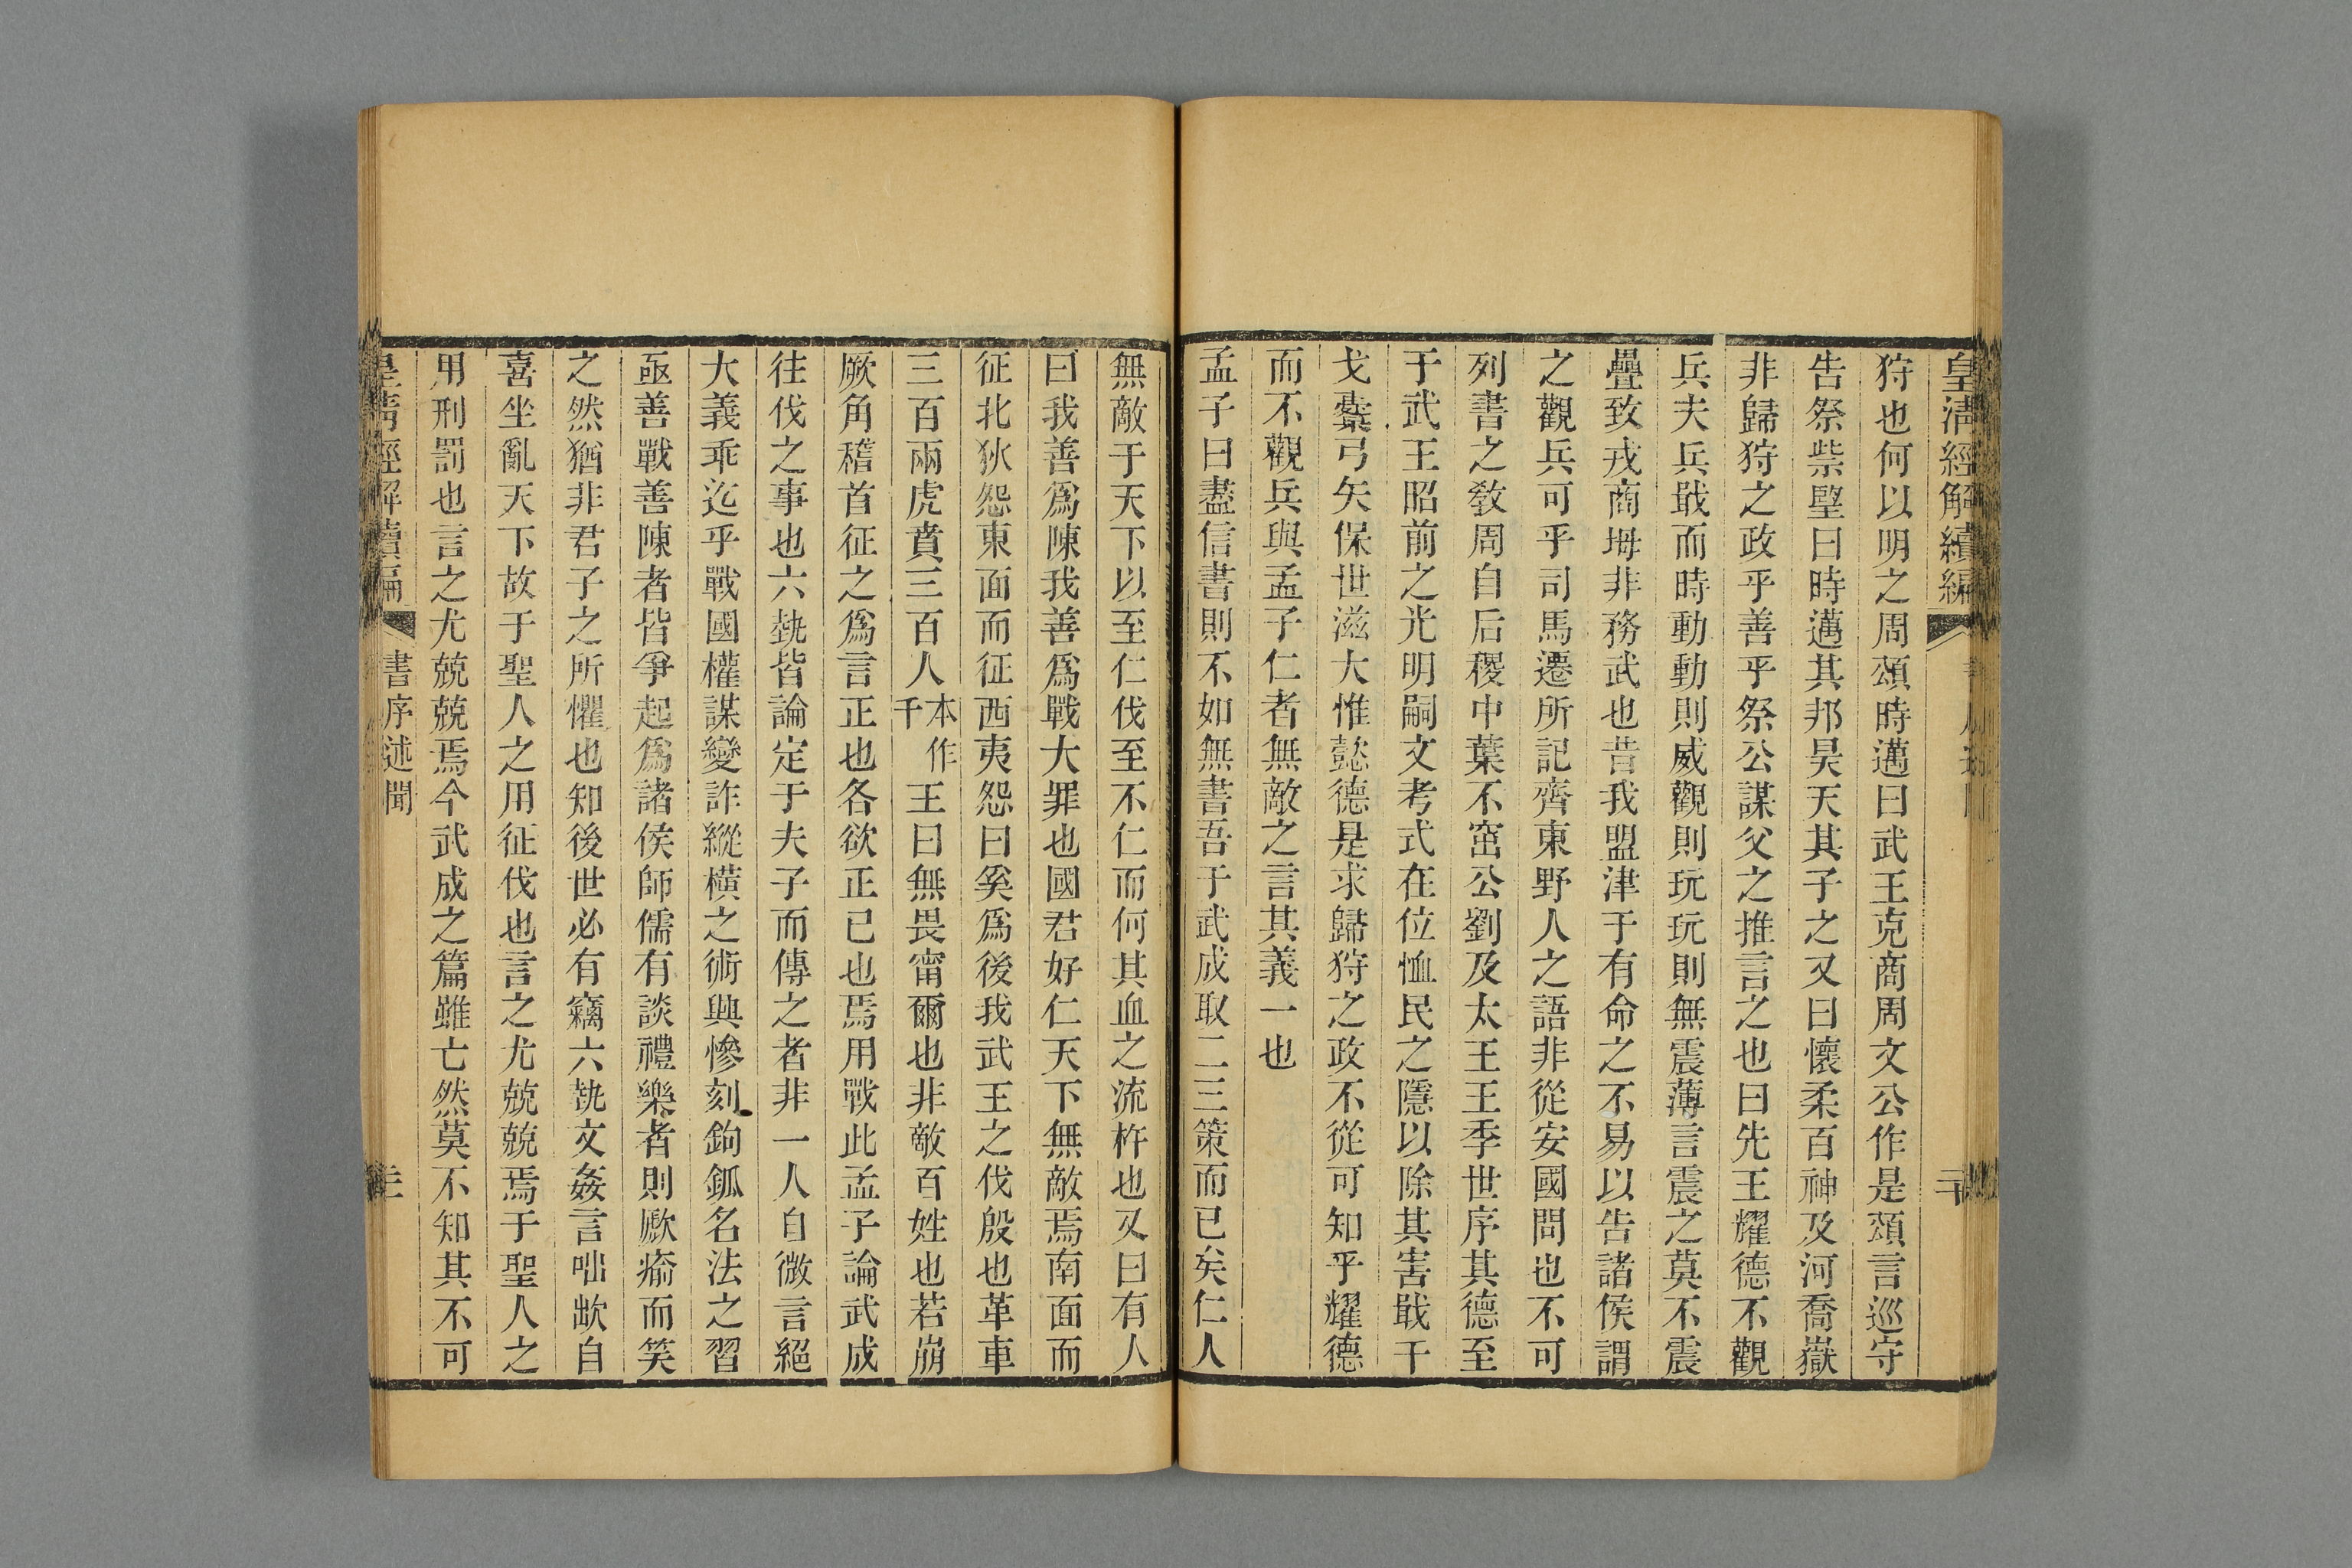 皇清經解續編
二十
狩也何以明之周頌時邁曰武王克商周文公作是頌言巡守
告祭柴朢曰時邁其邦昊天其子之又曰懷柔百神及河喬嶽
非歸狩之政乎善乎祭公謀父之推言之也曰先王耀德不觀
兵夫兵戢而時動動則威觀則玩玩則無震薄言震之莫不震
疊致戎商坶非務武也昔我盟津于有命之不易以告諸侯謂
之觀兵可乎司馬遷所記齊東野人之語非從安國問也不可
列書之敎周自后稷中葉不窋公劉及太王王季世序其德至
于武王昭前之光明嗣文考式在位恤民之隱以除其害戢干
戈櫜弓矢保世滋大惟懿德是求歸狩之政不從可知乎耀德
而不觀兵與孟子仁者無敵之言其義一也
孟子曰盡信書則不如無書吾于武成取二三策而已矣仁人
無敵于天下以至仁伐至不仁而何其血之流杵也又曰有人
曰我善爲陳我善爲戰大罪也國君好仁天下無敵焉南面而
征北狄怨東面而征西夷怨曰奚爲後我武王之伐殷也革車
三百兩虎賁三百人本作千王曰無畏甯爾也非敵百姓也若崩
厥角稽首征之爲言正也各欲正已也焉用戰此孟子論武成
往伐之事也六埶皆論定于夫子而傳之者非一人自微言絕
大義乖迄乎戰國權謀變詐縱橫之術興慘刻鉤鈲名法之習
亟善戰善陳者皆爭起爲諸侯師儒有談禮樂者則歍瘉而笑
之然猶非君子之所懼也知後世必有竊六埶文姦言咄歑自
喜坐亂天下故于聖人之用征伐也言之尤兢兢焉于聖人之
用刑罰也言之尤兢兢焉今武成之篇雖亡然莫不知其不可
皇清經解續編
書序述聞